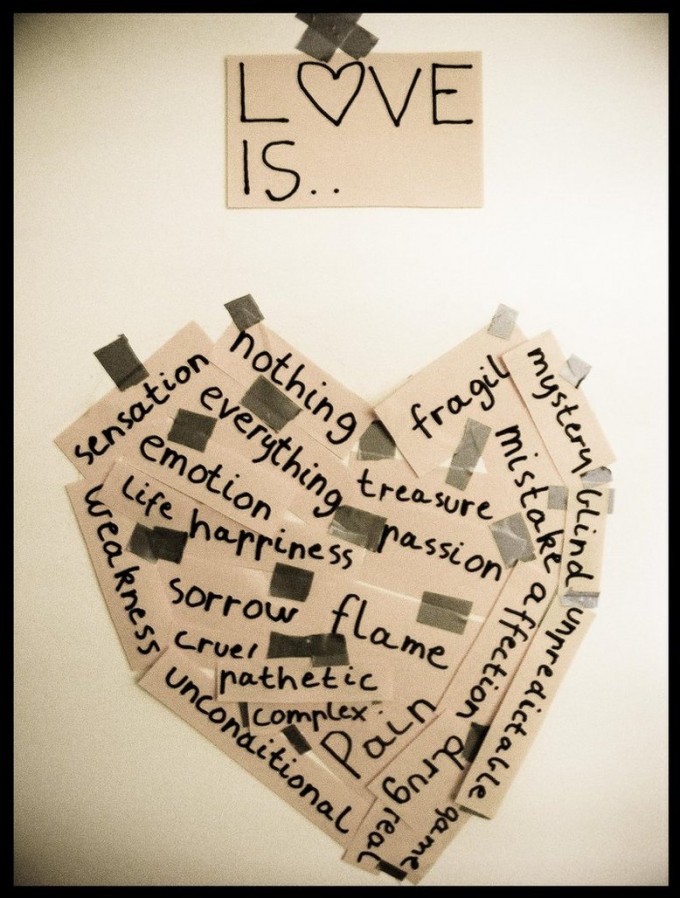 L♡VE
IS..
nothing
sensation
everything
fragil
mystery
emotion
treasure
mistake
blind
life
happiness
passion
weakness
sorrow
flame
affection
unpredictable
cruel
pathetic
complex
unconditional
pain
drug
real
game